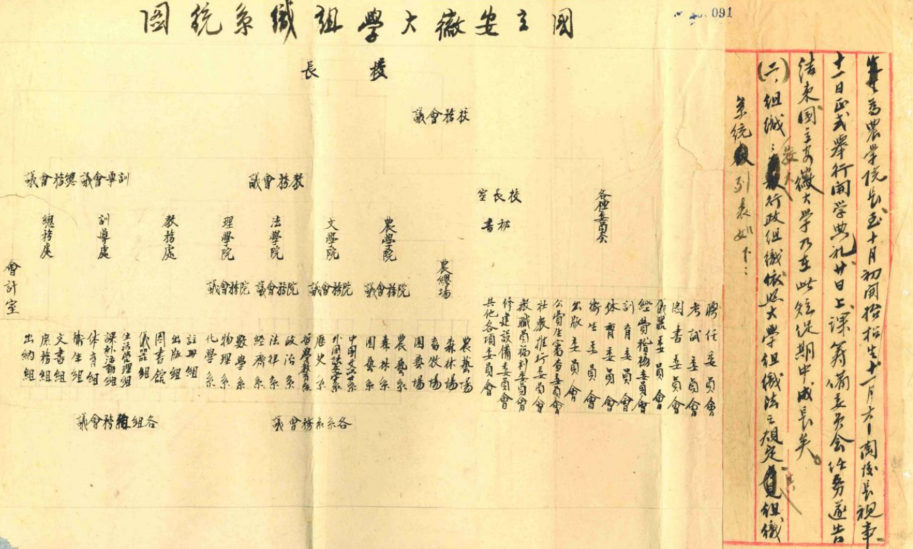 091
國立安徽大學組織系統圖
校長
校務會議
教務會議
訓導會議
總務會議
各種委員會
校長室
秘書
農總場
農學院
文學院
法學院
理學院
教務處
訓導處
總務處
會計室
院務會議
院務會議
院務會議
院務會議
聘任委員會
考試委員會
圖書委員會
儀器委員會
經費稽核委員會
訓育委員會
體育委員會
衛生委員會
出版委員會
公費生審查委員會
社教推行委員會
教職員福利委員會
修建設備委員會
其他各項委員會
農藝場
森林場
畜牧場
園藝場
農藝系
森林系
園藝系
中國文學系
外國語文系
歷史系
哲學教育系
政治系
法律系
經濟系
數學系
物理系
化學系
註冊組
出版組
圖書館
儀器組
生活管理組
課外活動組
體育組
衛生組
文書組
庶務組
出納組
各系系務會議
各組組務會議
為農學院長至十月初間招考新生十一月六日陶校長視事
十一日正式舉行開學典禮廿日上課籌備委員會任務遂告
結束國立安徽大學乃在此短促期中成長矣
(二)組織：敎大行政組織依照大學組織法之規定其組織
系統列表如下：